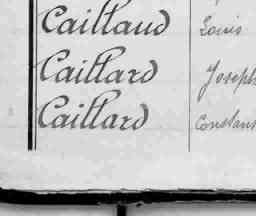 Caillaud Louis
Caillard Joseph
Caillard Constan